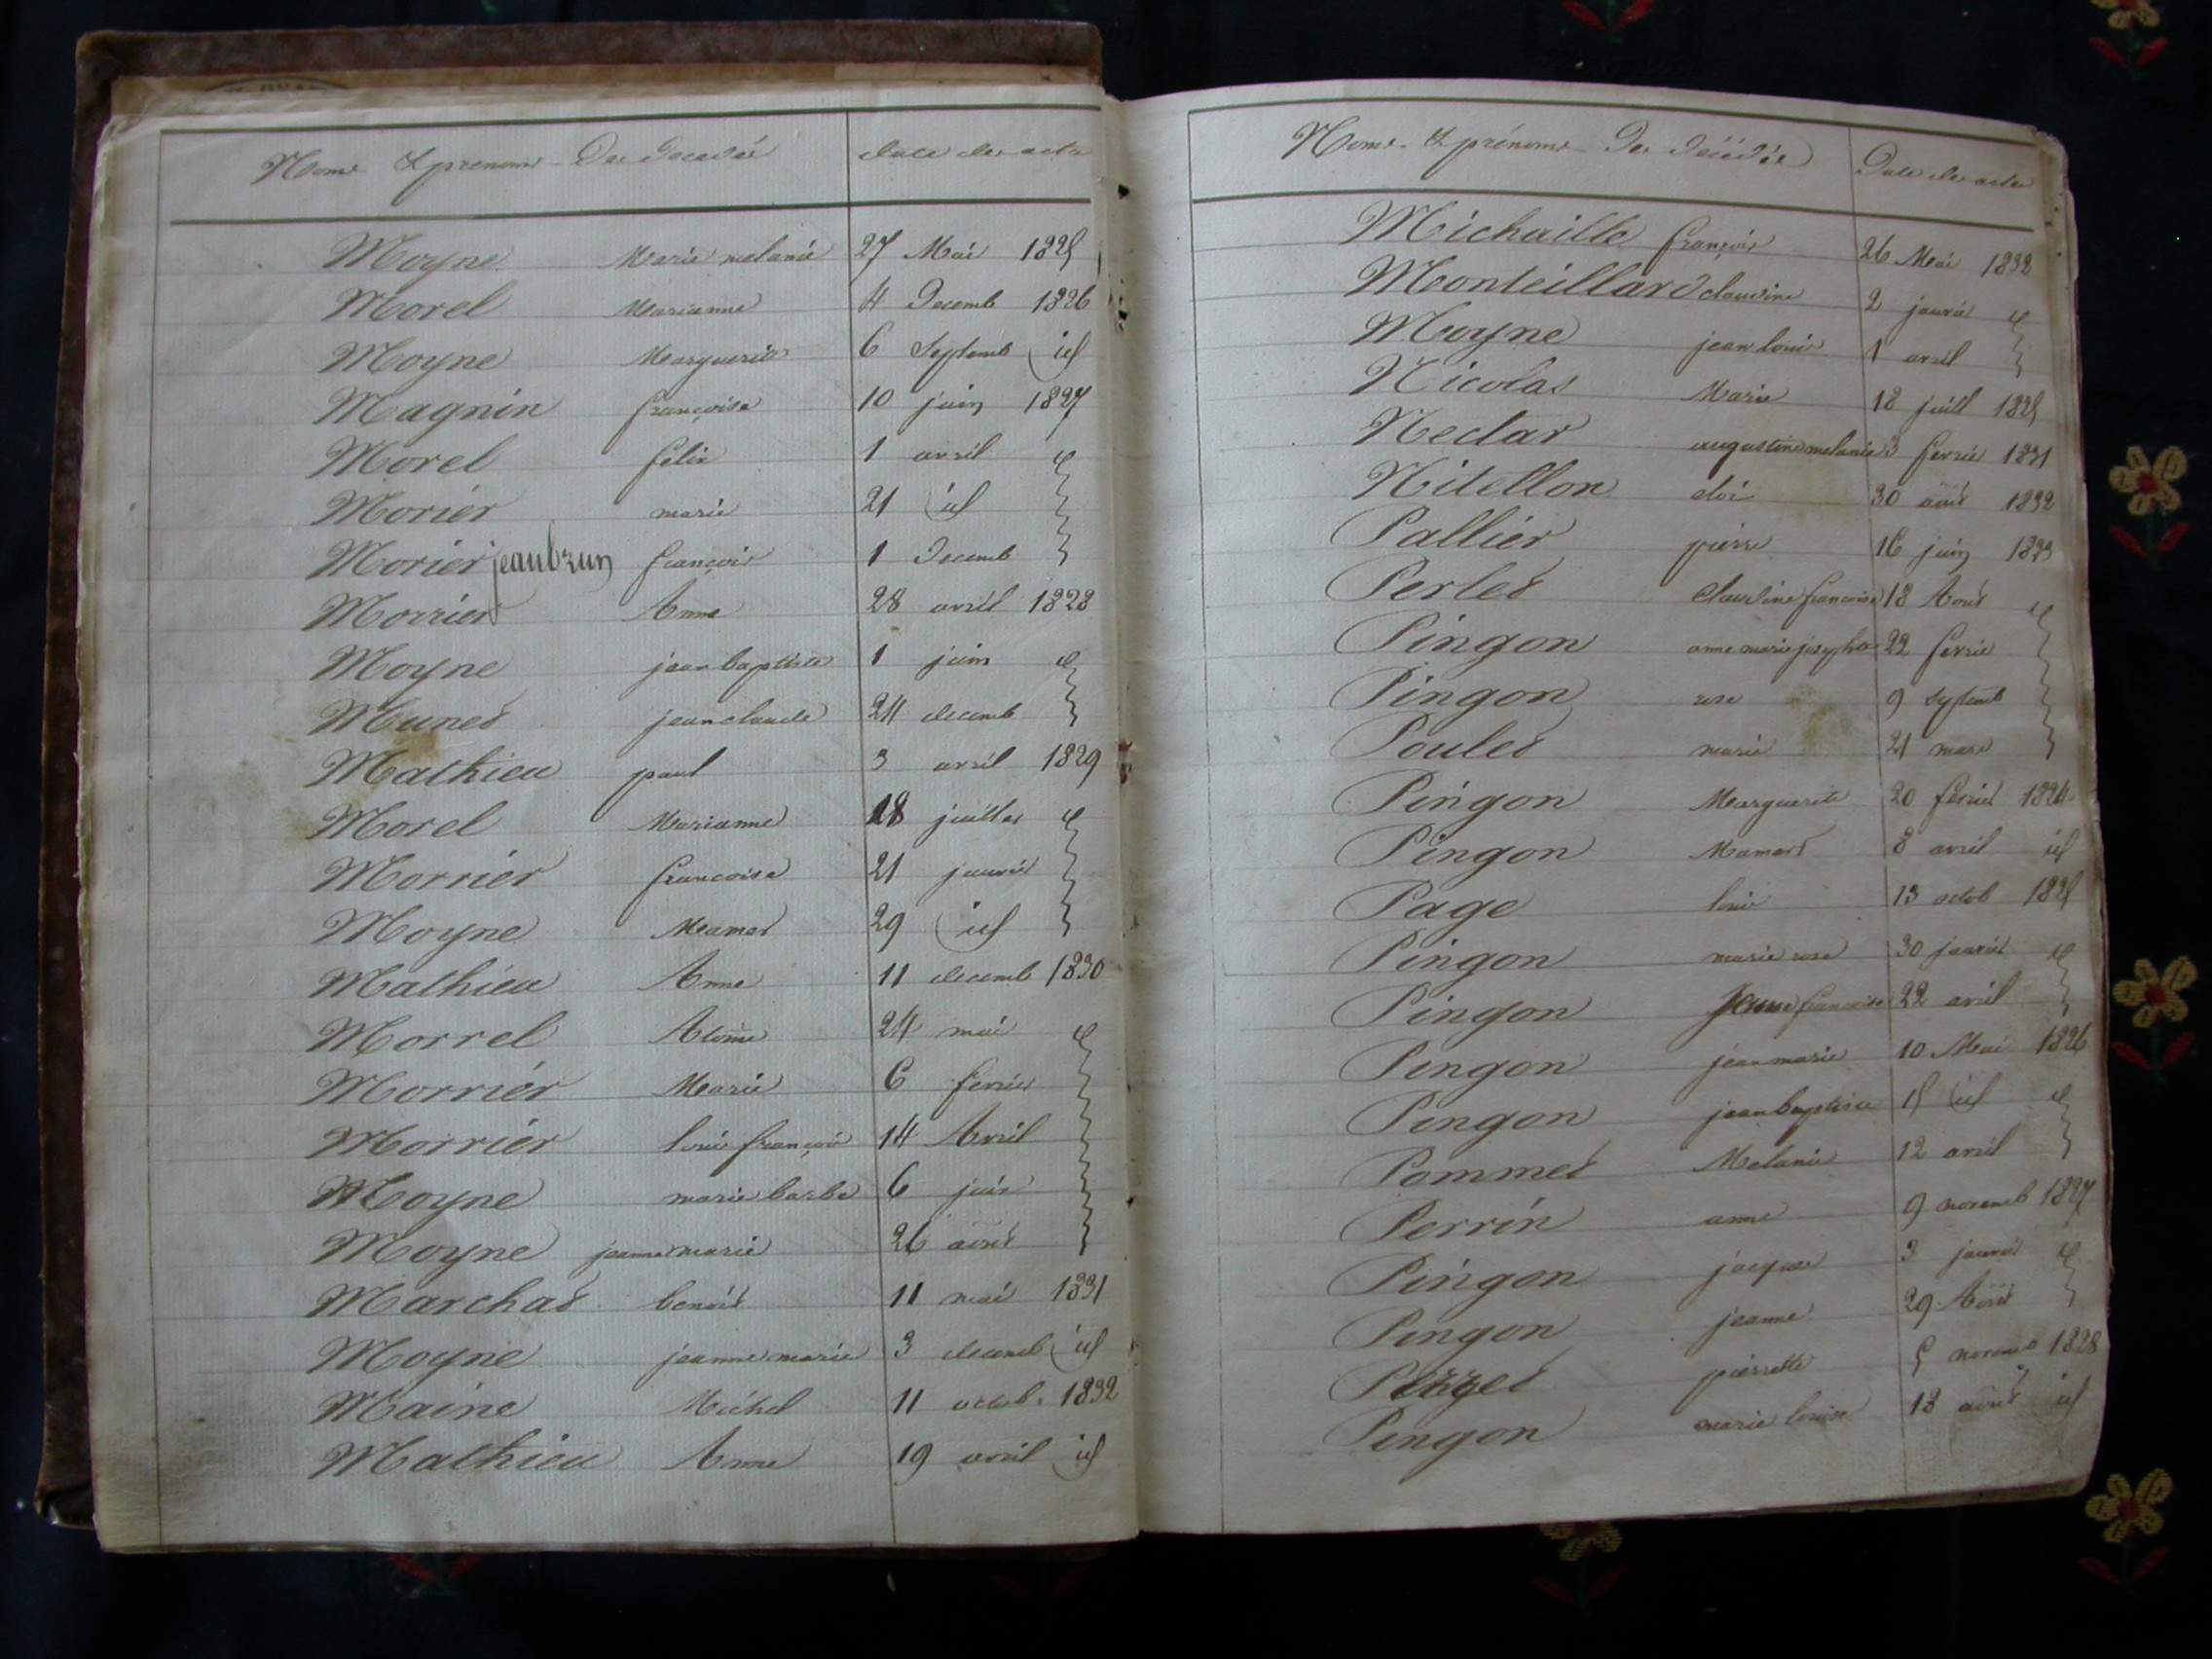 Noms & prenoms Des Décédés date des actes
Moyne Marie melanie 27 Mai 1825
Morel Marianne 4 Decemb 1826
Moyne Marguerite 6 Septemb id
Magnin françoise 10 juin 1827
Morel felix 1 avril
Morier marie 21 id
Morier jeanbrun françois 1 Decemb
Morrier Anne 28 avril 1828
Moyne jean baptiste 1 juin
Munet jean claude 24 decemb
Mathieu paul 3 avril 1829
Morel Marianne 18 juillet
Morrier francoise 21 janvié
Moyne Mamert 29 id
Mathieu Anne 11 decemb 1830
Morrel 24 mai
Morrier Marie 6 fevrier
Morrier louis françois 14 Avril
Moyne marie barbe 6 juin
Moyne jeanne marie 26 aout
Marchat benoit 11 mai 1831
Moyne jeanne marie 3 decemb id
Maine Michel 11 octob. 1832
Mathieu Anne 19 avril id
Noms & prénoms Des Décédés Date des actes
Michaille françois 26 Mai 1832
Monteillard claudine 2 janvié
Moyne jean louis 1 avril
Nicolas Marie 18 juill 1825
Neclar augustine melanie 3 fevrié 1831
Nitellon eloi 30 aout 1832
Pallier pierre 16 juin 1823
Perlet Claudine francoise 18 Aout
Pingon anne marie josephte 22 fevrié
Pingon rose 9 septemb
Poulet marie 21 mars
Pingon Marguerite 20 fevrier 1824
Pingon Mamert 8 avril id
Page louis 13 octob 1825
Pingon marie rose 30 janvié
Pingon Jeanne francoise 22 avril
Pingon jean marie 10 Mai 1826
Pingon jean baptiste 15 id
Pommet Melanie 12 avril
Perrin anne 9 novemb 1827
Pingon jacques 3 janvié
Pingon jeanne 29 Aout
pierrette 5 novemb 1828
Pingon marie louise 18 aout id